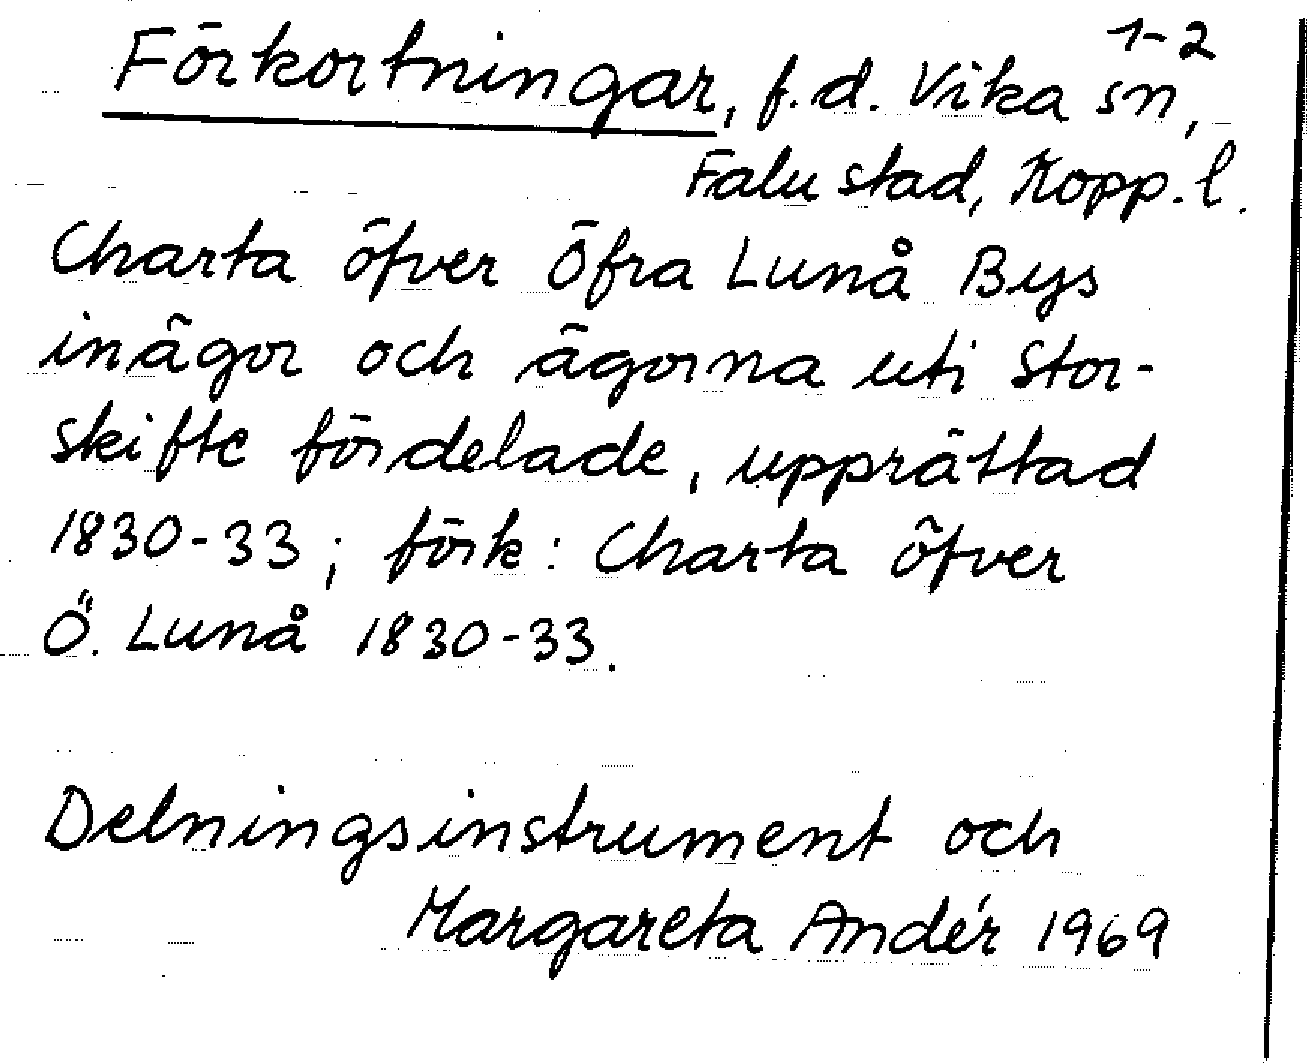 1-2
Förkortningar, f.d. Vika sn,
Falu stad, Kopp. l.
Charta öfver Öfra Lunå Bys
inägor och ägorna uti Stor-
skifte fördelade, upprättad
1830-33; förk: Charta öfver
Ö. Lunå 1830-33.
Delningsinstrument och
Margareta Andér 1969